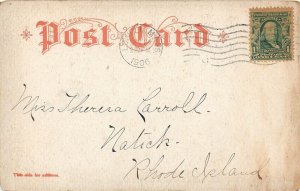 Post Card
1906
Miss Theresa Carroll.
Natick.
Rhode Island.
This side for address.